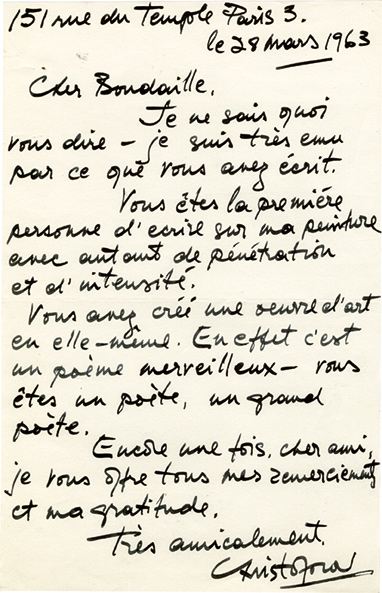 151 rue du Temple Paris 3.
le 28 mars 1963
Cher Boudaille,
Je ne sais quoi
vous dire – je suis très emu
par ce que vous avez écrit.
Vous êtes la première
personne d'ecrire sur ma peinture
avec autant de pénétration
et d'intensité.
Vous avez créé une oeuvre d'art
en elle-même. En effet c'est
un poème merveilleux – vous
êtes un poète, un grand
poète.
Encore une fois, cher ami,
je vous offre tous mes remerciements
et ma gratitude.
Très amicalement.
Christoforou